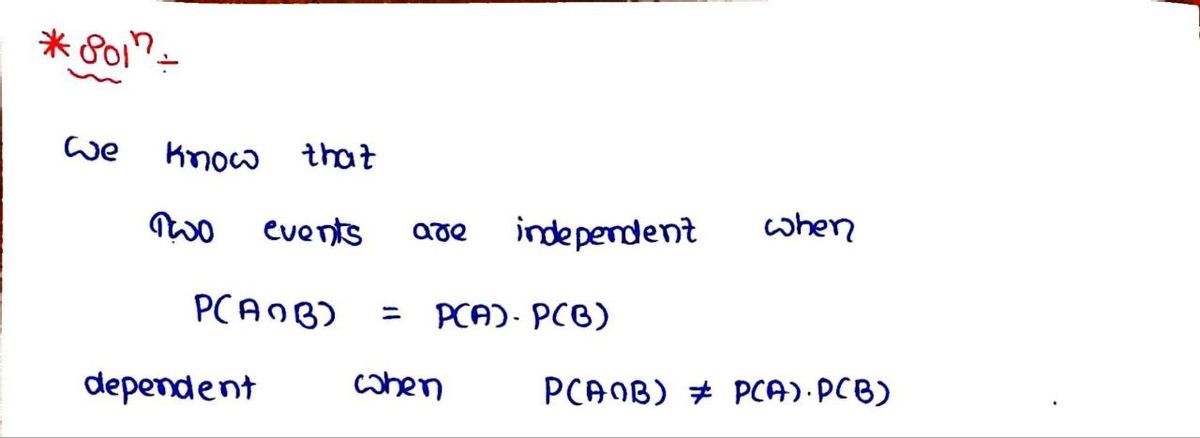 * Soln:-
We know that
Two events are independent when
P(A∩B) = P(A). P(B)
dependent when P(A∩B) ≠ P(A).P(B)